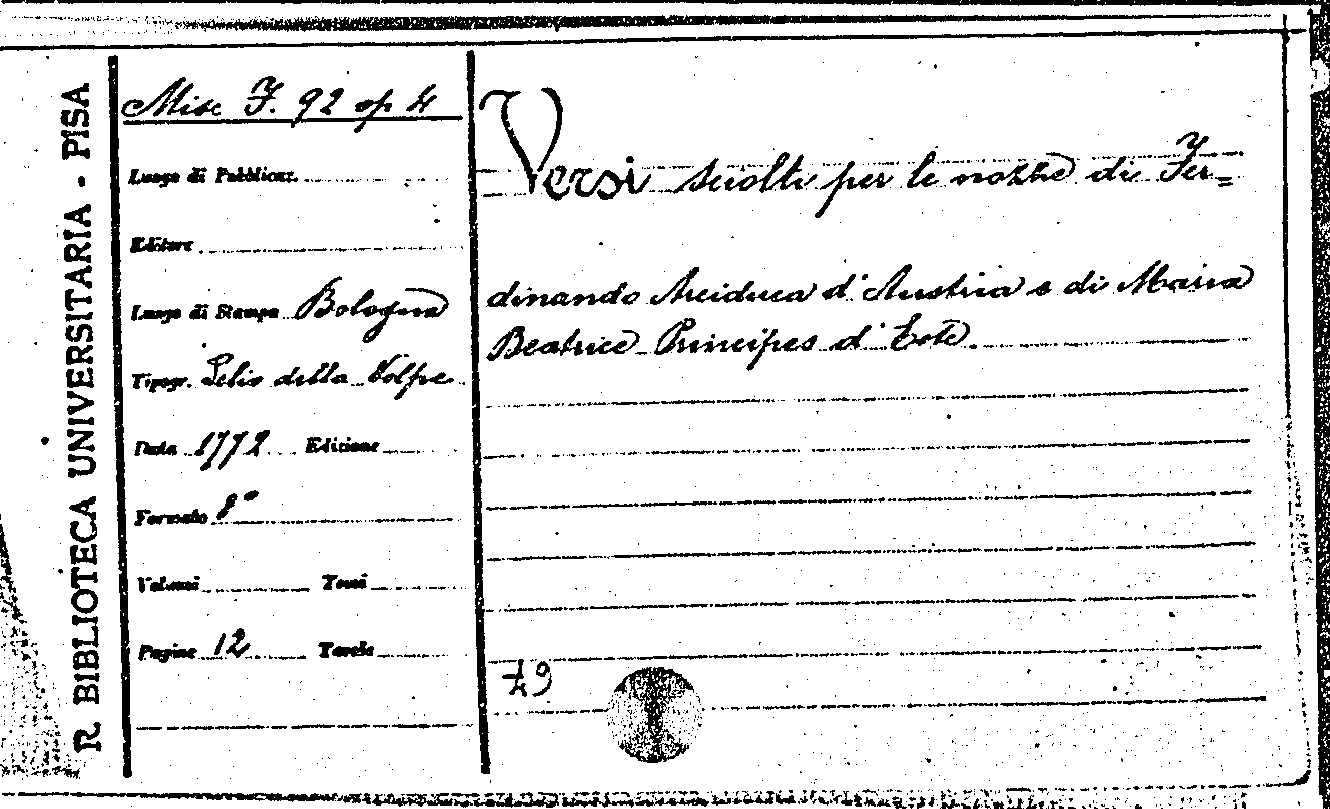 R. BIBLIOTECA UNIVERSITARIA - PISA
Misc F. 92 op 4
Luogo di Pubblicaz.
Editore
Luogo di Stampa Bologna
Tipogr. Lelio della Volpe
Data 1772 Edizione
Formato 8°
Volumi Tomi
Pagine 12 Tavole
Versi sciolti per le nozze di Fer=
dinando Arciduca d'Austria e di Maria
Beatrice Principes d'Este.
49